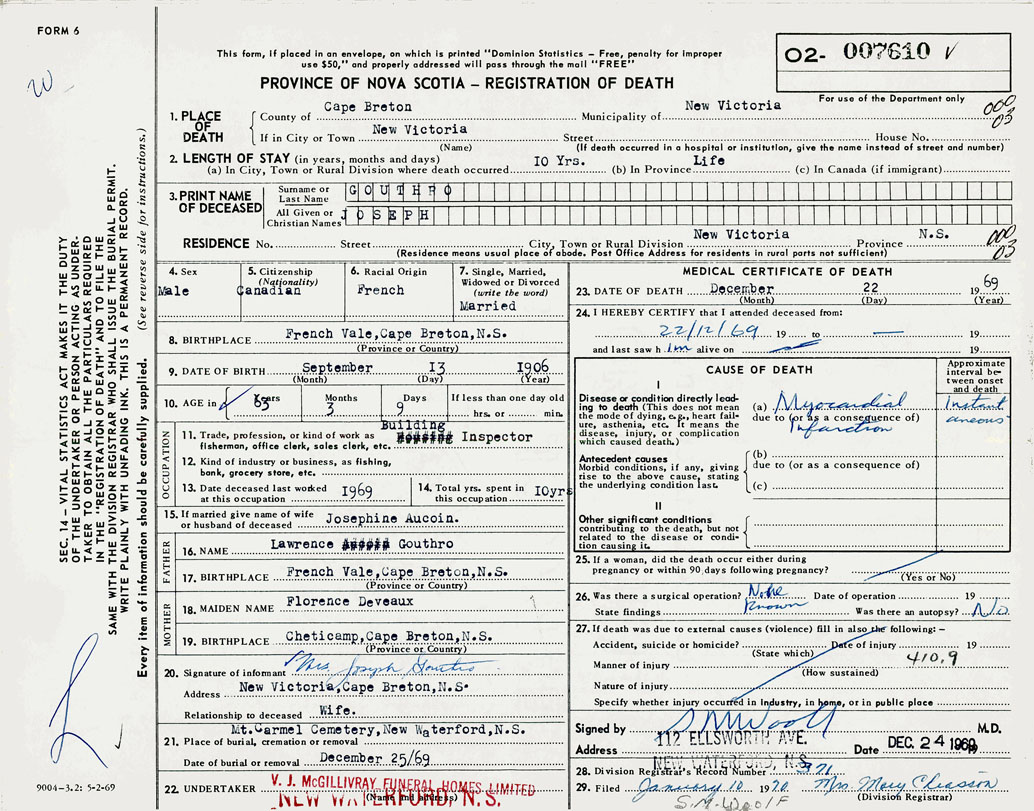 FORM 6
This form, if placed in an envelope, on which is printed "Dominion Statistics – Free, penalty for improper
use $50," and properly addressed will pass through the mail "FREE"
PROVINCE OF NOVA SCOTIA – REGISTRATION OF DEATH
02- 007610
For use of the Department only
000
03
1. PLACE OF DEATH
County of Cape Breton Municipality of New Victoria
If in City or Town New Victoria Street House No.
(Name) (If death occurred in a hospital or institution, give the name instead of street and number)
2. LENGTH OF STAY (in years, months and days)
(a) In City, Town or Rural Division where death occurred 10 Yrs. (b) In Province Life (c) In Canada (if immigrant)
3. PRINT NAME OF DECEASED
Surname or Last Name GOUTHRO
All Given or Christian Names JOSEPH
RESIDENCE No. Street City, Town or Rural Division New Victoria Province N.S.
(Residence means usual place of abode. Post Office Address for residents in rural parts not sufficient)
000
03
4. Sex Male
5. Citizenship (Nationality) Canadian
6. Racial Origin French
7. Single, Married, Widowed or Divorced (write the word) Married
8. BIRTHPLACE French Vale,Cape Breton,N.S.
(Province or Country)
9. DATE OF BIRTH September 13 1906
(Month) (Day) (Year)
10. AGE in Years 63 Months 3 Days 9 If less than one day old hrs. or min.
OCCUPATION
Building
11. Trade, profession, or kind of work as fisherman, office clerk, sales clerk, etc. Inspector
12. Kind of industry or business, as fishing, bank, grocery store, etc.
13. Date deceased last worked at this occupation 1969
14. Total yrs. spent in this occupation 10yrs
15. If married give name of wife or husband of deceased Josephine Aucoin.
FATHER
16. NAME Lawrence Gouthro
17. BIRTHPLACE French Vale,Cape Breton,N.S.
(Province or Country)
MOTHER
18. MAIDEN NAME Florence Deveaux
19. BIRTHPLACE Cheticamp,Cape Breton,N.S.
(Province or Country)
20. Signature of informant Mrs. Joseph Gouthro
Address New Victoria,Cape Breton,N.S.
Relationship to deceased Wife.
Mt.Carmel Cemetery,New Waterford,N.S.
21. Place of burial, cremation or removal
Date of burial or removal December 25/69
22. UNDERTAKER V. J. McGILLIVRAY FUNERAL HOMES LIMITED
(Name and address)
NEW WATERFORD, N. S.
MEDICAL CERTIFICATE OF DEATH
23. DATE OF DEATH December 22 1969
(Month) (Day) (Year)
24. I HEREBY CERTIFY that I attended deceased from:
22/12/69 19 to — 19
and last saw h im alive on 19
CAUSE OF DEATH
Approximate interval between onset and death
I
Disease or condition directly leading to death (This does not mean the mode of dying, e.g., heart failure, asthenia, etc. It means the disease, injury, or complication which caused death.)
(a) Myocardial
due to (or as a consequence of)
Infarction
Instantaneous
Antecedent causes
Morbid conditions, if any, giving rise to the above cause, stating the underlying condition last.
(b)
due to (or as a consequence of)
(c)
II
Other significant conditions
contributing to the death, but not related to the disease or condition causing it.
25. If a woman, did the death occur either during pregnancy or within 90 days following pregnancy?
(Yes or No)
26. Was there a surgical operation? None Date of operation 19
State findings Known Was there an autopsy? No
27. If death was due to external causes (violence) fill in also the following: –
Accident, suicide or homicide? Date of injury 19
(State which) 410.9
Manner of injury
(How sustained)
Nature of injury
Specify whether injury occurred in industry, in home, or in public place
Signed by M.D.
Address 112 ELLSWORTH AVE. Date DEC 24 1969
NEW WATERFORD, N.S.
28. Division Registrar's Record Number 371
29. Filed January 10 1970 Mrs. Mary Chiasson
(Division Registrar)
SEC. 14 – VITAL STATISTICS ACT MAKES IT THE DUTY
OF THE UNDERTAKER OR PERSON ACTING AS UNDER-
TAKER TO OBTAIN ALL THE PARTICULARS REQUIRED
IN THE "REGISTRATION OF DEATH" AND TO FILE THE
SAME WITH THE DIVISION REGISTRAR WHO SHALL ISSUE THE BURIAL PERMIT.
WRITE PLAINLY WITH UNFADING INK. THIS IS A PERMANENT RECORD.
Every item of information should be carefully supplied. (See reverse side for instructions.)
9004-3.2: 5-2-69